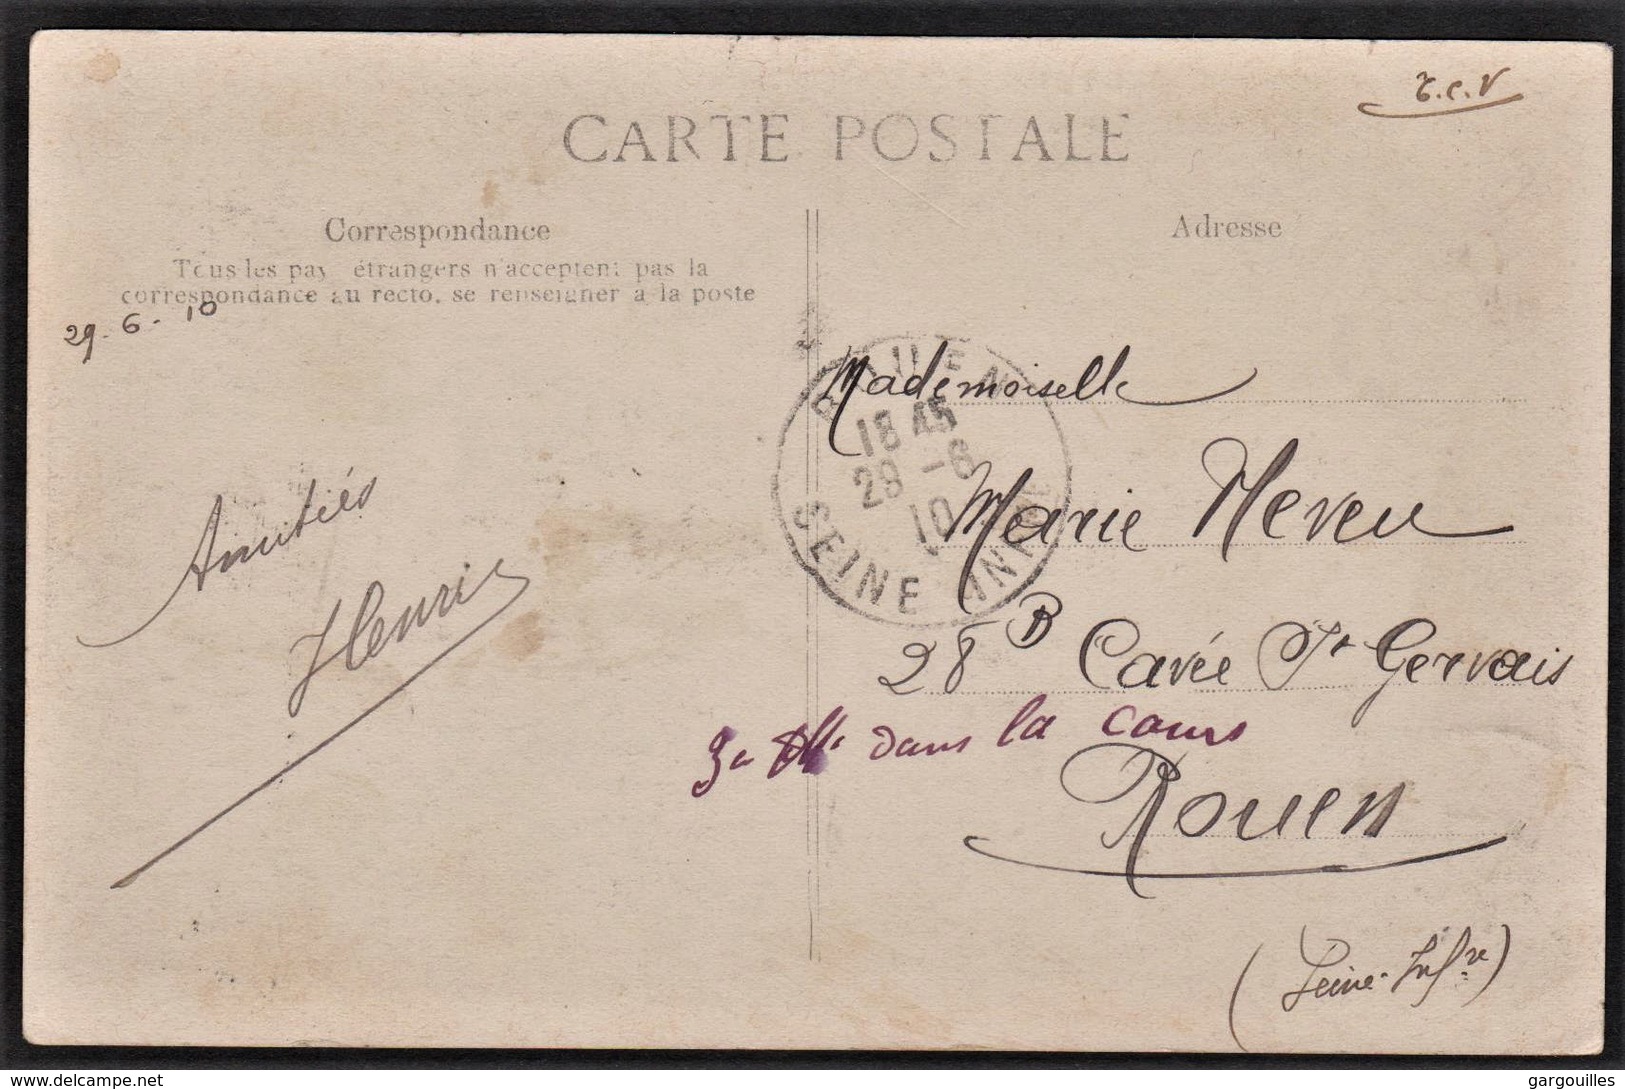 T.C.V
CARTE POSTALE
Correspondance
Tous les pay étrangers n'acceptent pas la
correspondance au recto, se renseigner a la poste
29-6-10
Amitiés
Henri
Adresse
ROUEN
18 45
29 -6
10
SEINE INFRE
Mademoiselle
Marie Neveu
28 B Cavée St Gervais
dans la cour
Rouen
(Seine-Infre)
gargouilles